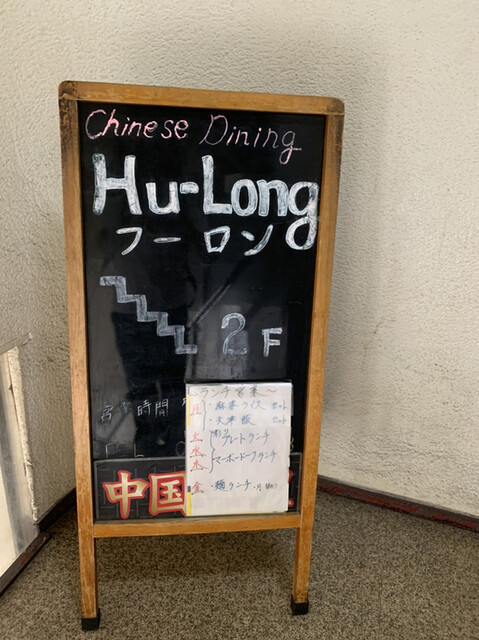 Chinese Dining
Hu-Long
フーロン
2F
時間
ランチ営業
月
・麻婆ライス セット
・天津飯 セット
プレートランチ
水
木
マーボードーフランチ
金 ・麺ランチ
中国